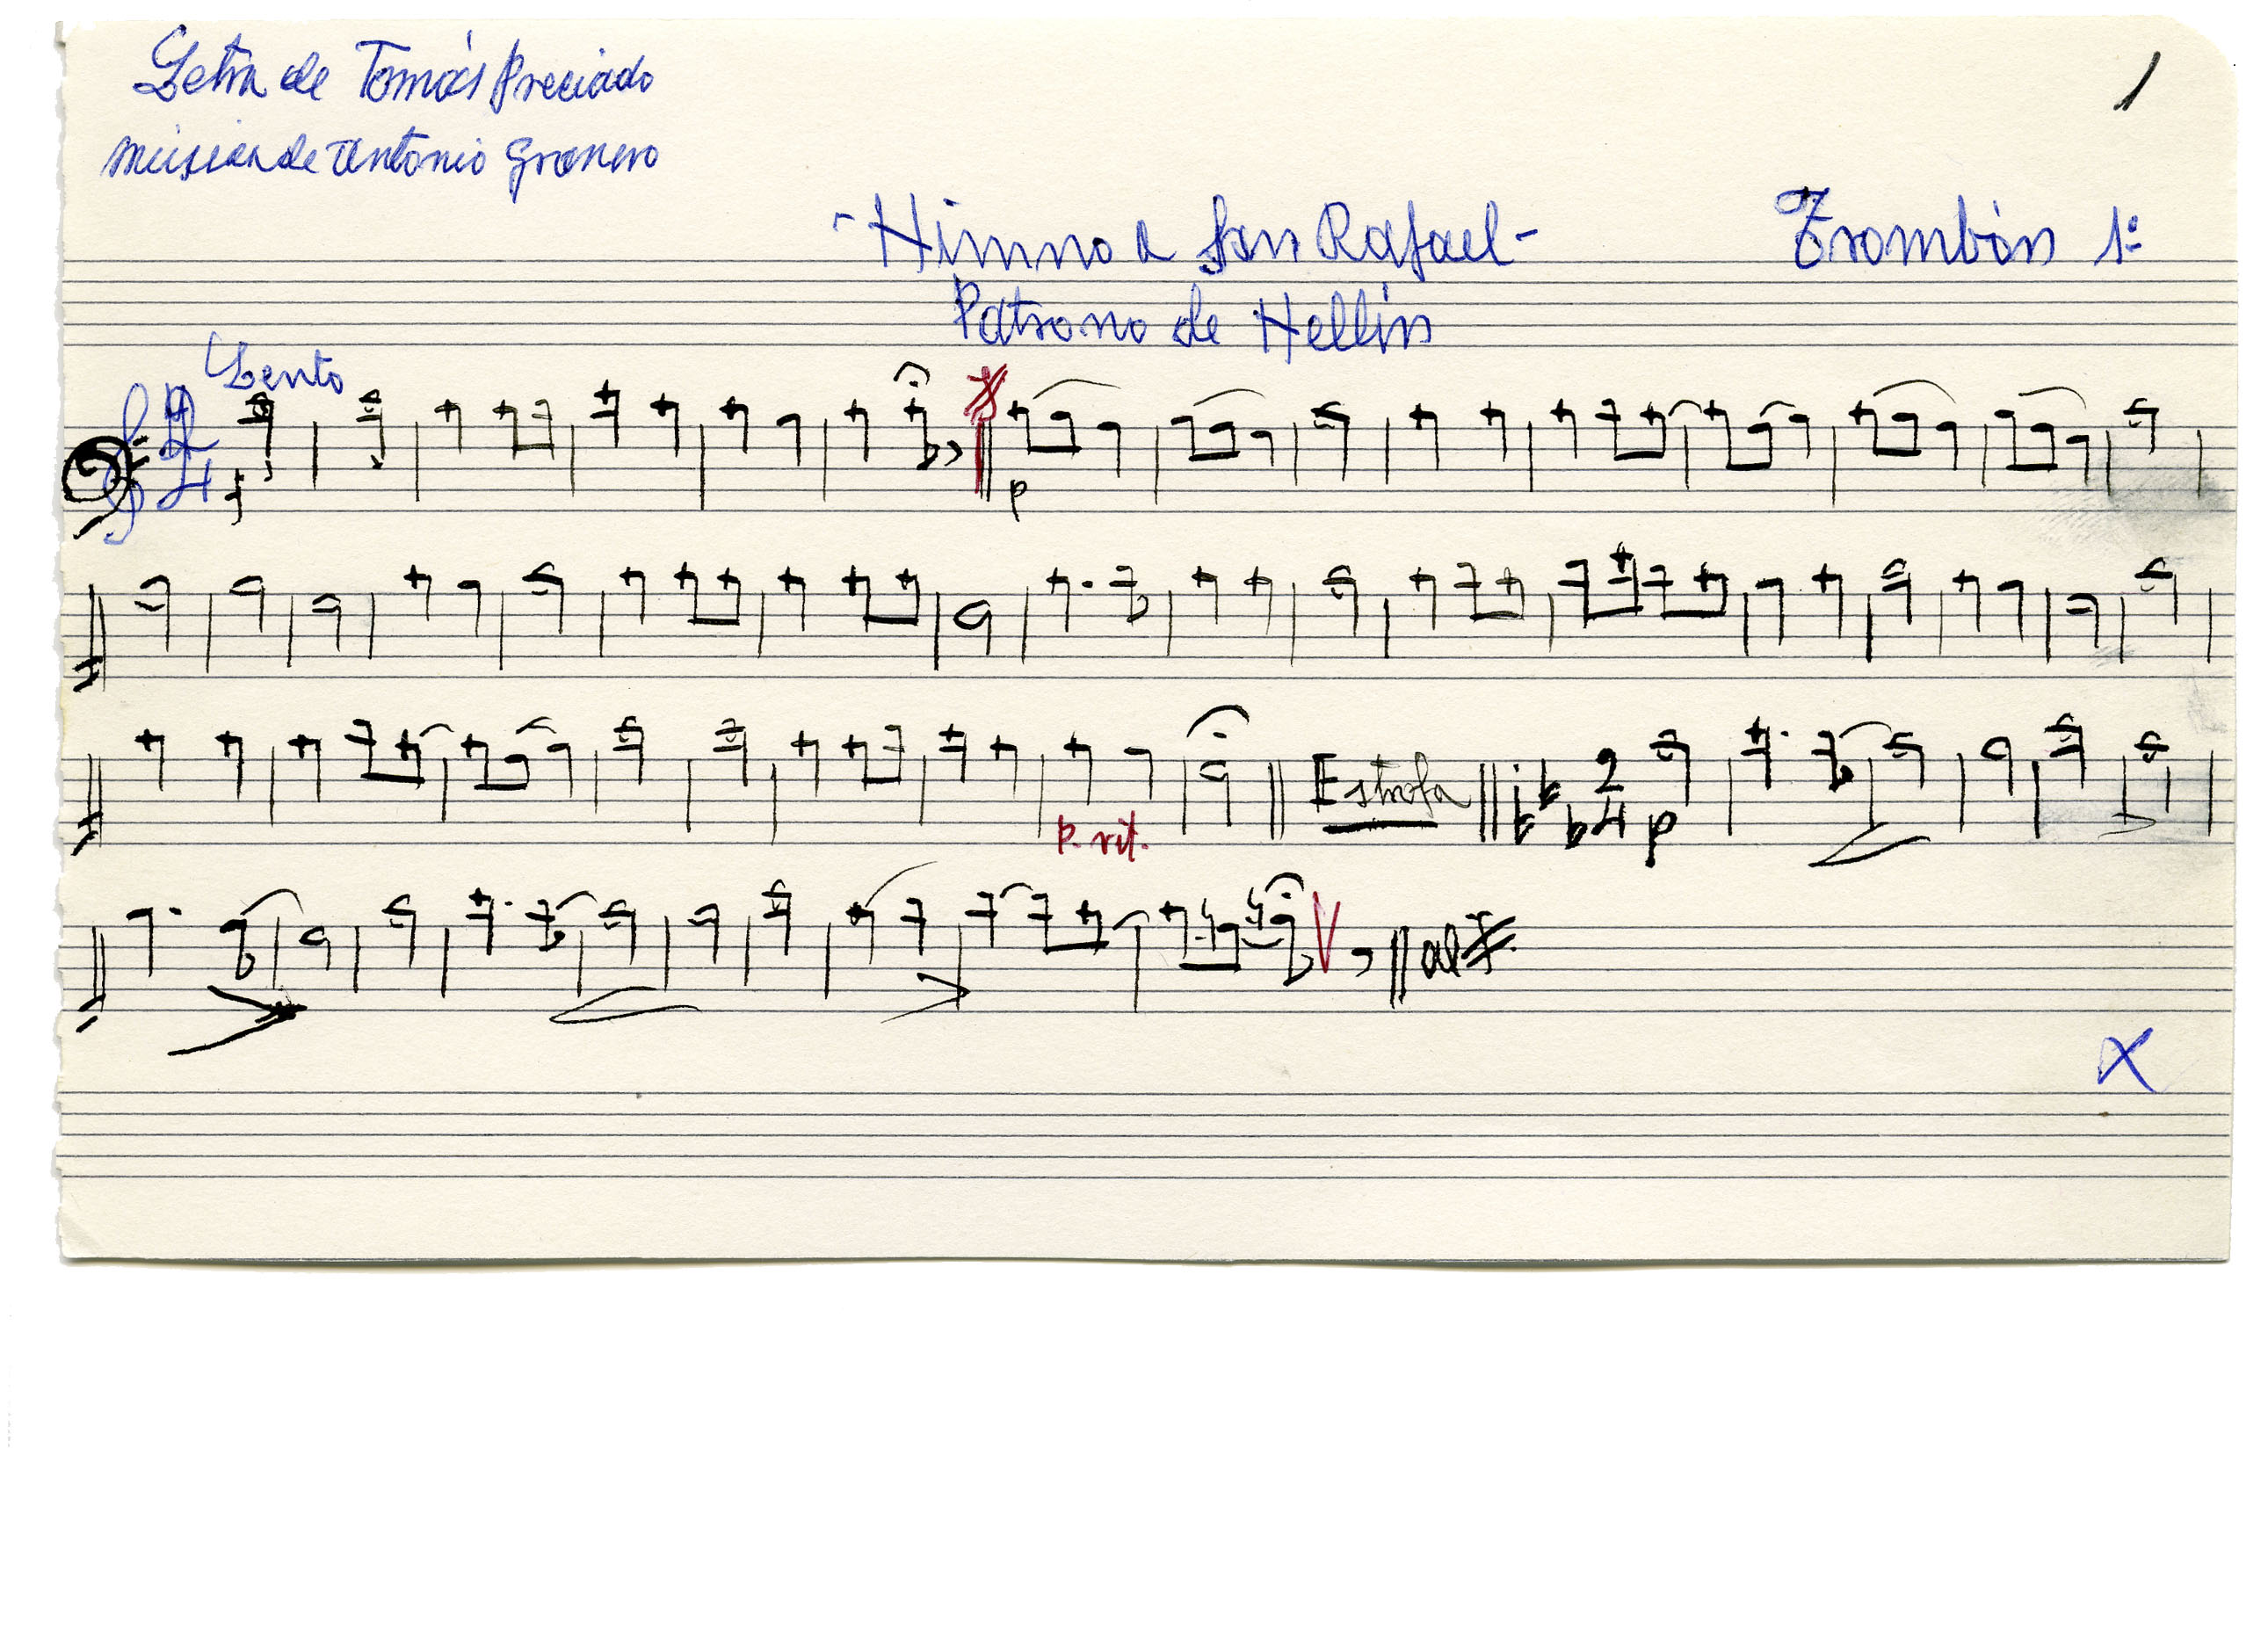 Letra de Tomás Preciado
1
musica de Antonio Granero
- Himno a San Rafael -
Trombón 1º
Patrono de Hellín
Lento
2
4
f
p
p. rit.
Estrofa
2
4
p
al
X